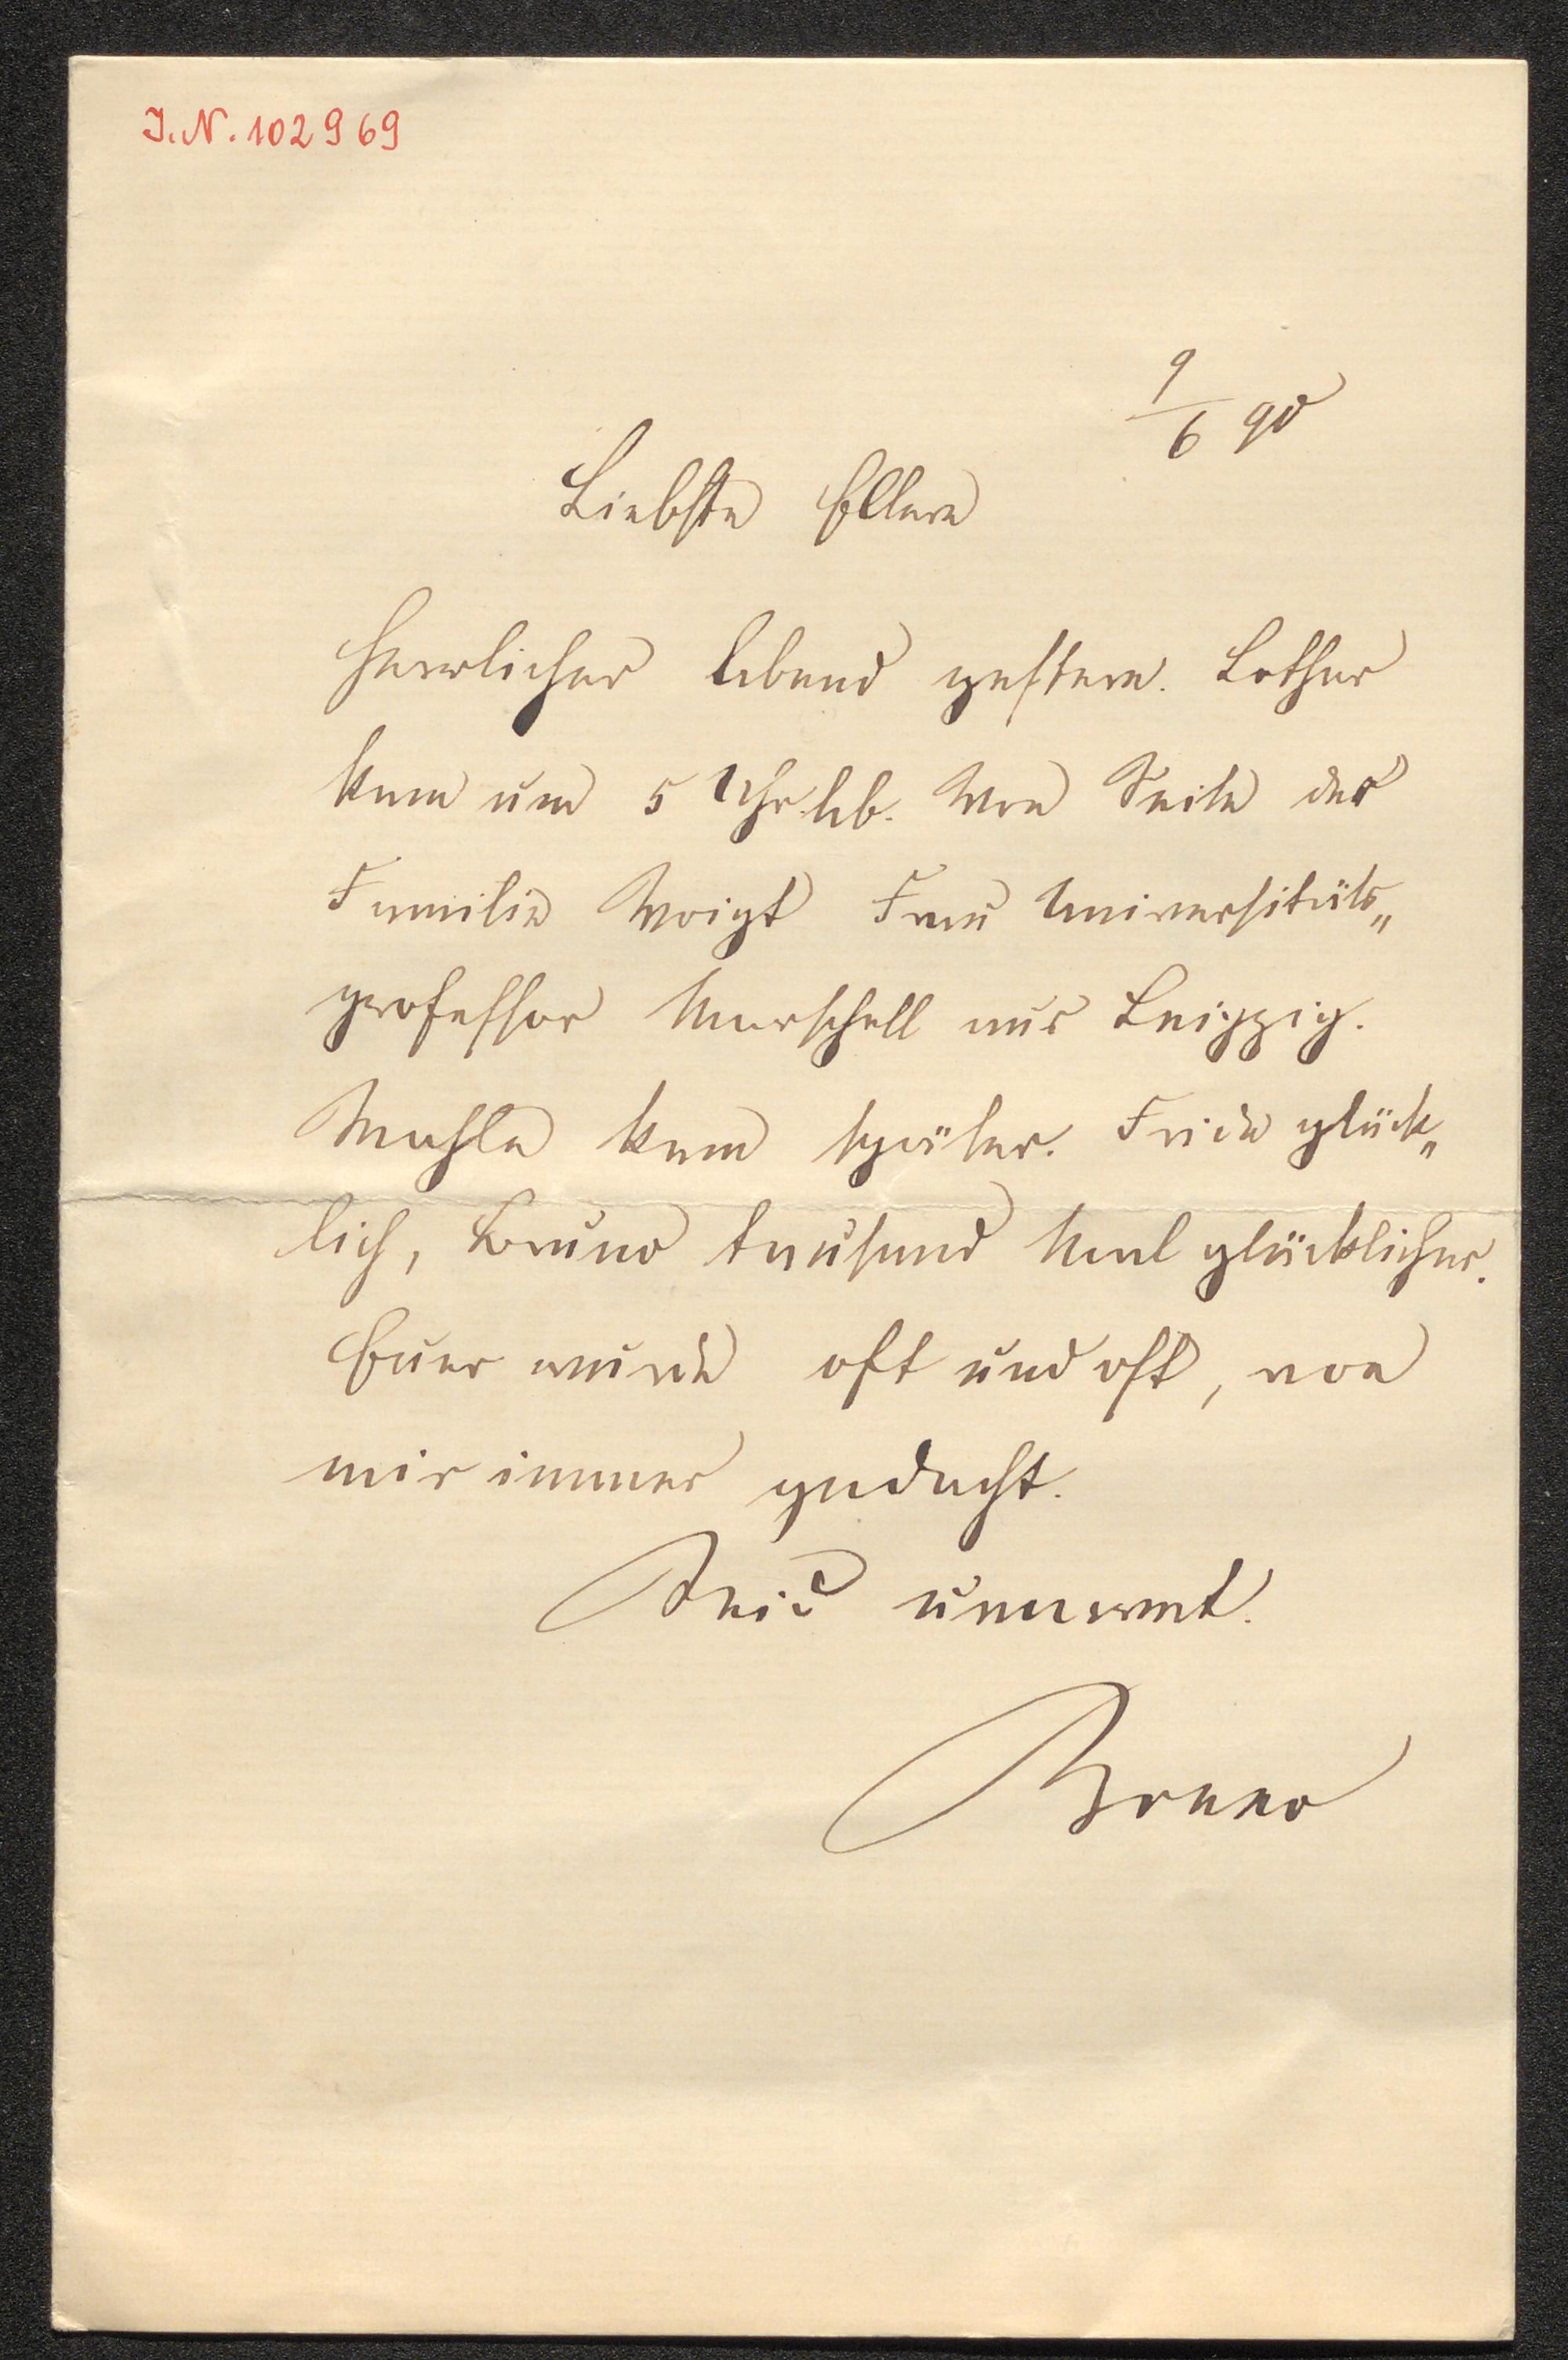 I.N. 102969
9/6 90
Liebste Eltern
Herrlicher Abend gestern. Lothar
kam um 5 Uhr Ab. Von Seite der
Familie Voigt Frau Universitäts„
professor Marschall aus Leipzig.
kam später. Frida glück„
lich, Bruno tausend Mal glücklicher.
Euer wurde oft und oft, von
mir immer gedacht.
Seid umarmt.
Bruno